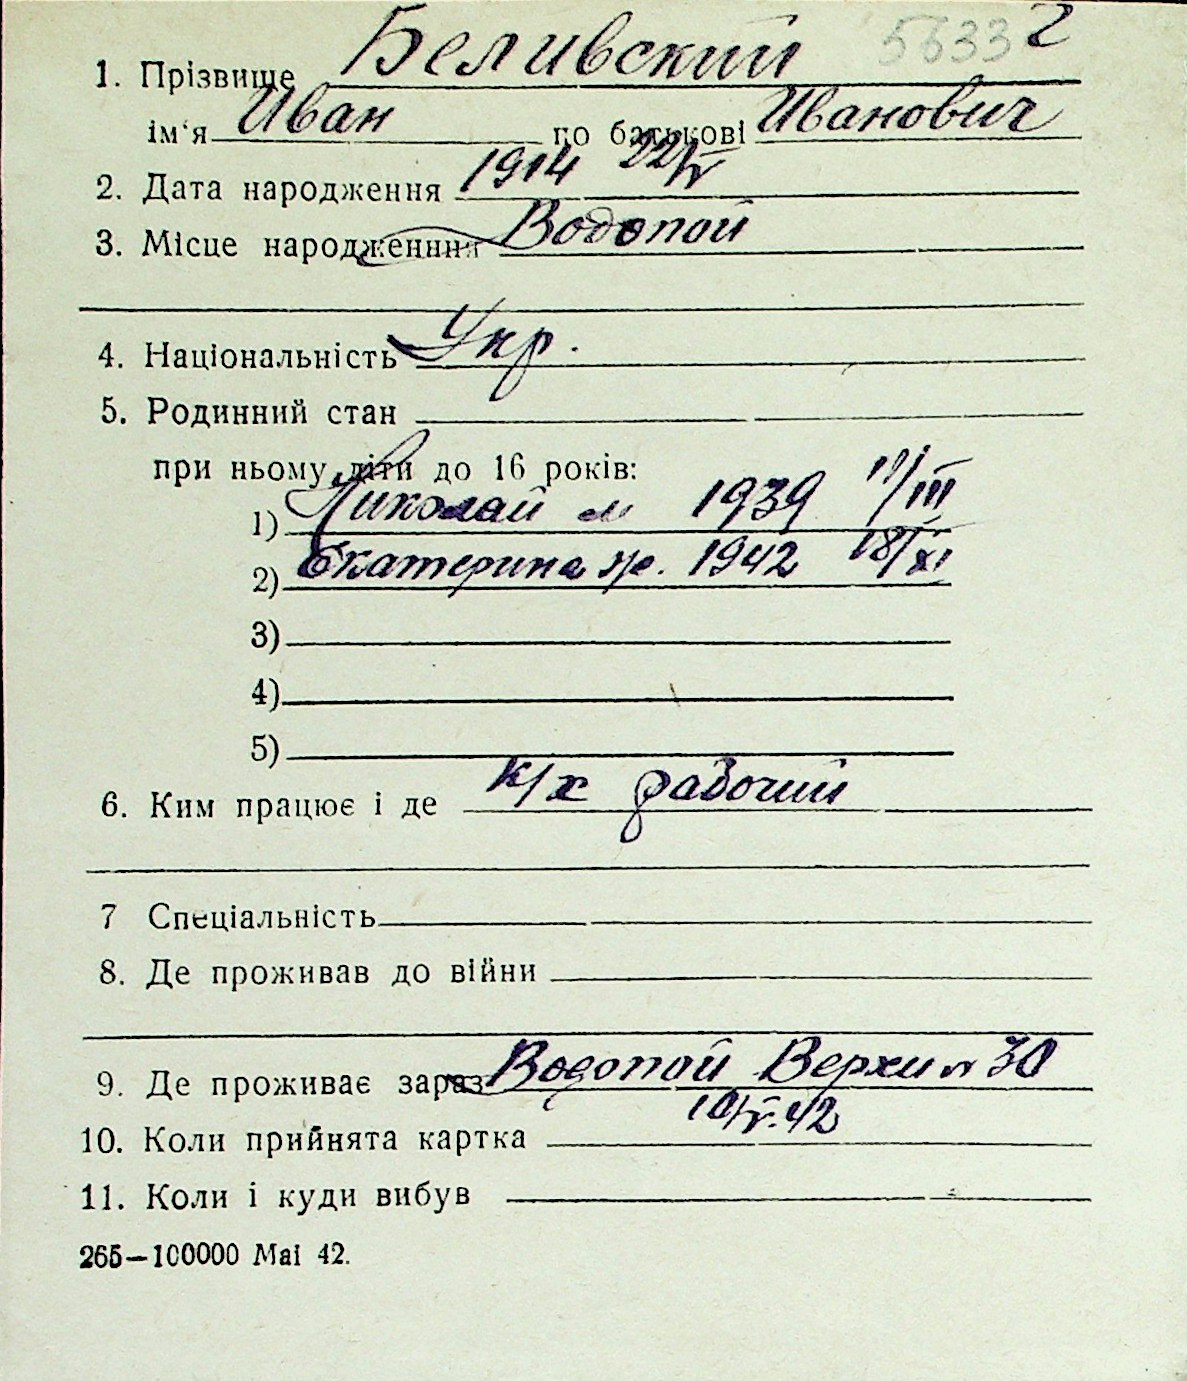 5633 2
1. Прізвище Беливский
ім'я Иван по батькові Иванович
2. Дата народження 1914 22/V
3. Місце народженння Водопой
4. Національність Укр.
5. Родинний стан
при ньому діти до 16 років:
1) Николай м 1939 11/III
2) Екатерина ж. 1942 18/XI
3)
4)
5)
6. Ким працює і де к/х рабочий
7 Спеціальність
8. Де проживав до війни
9. Де проживає зараз Водопой Верхн 30
10. Коли прийнята картка 10/V.42
11. Коли і куди вибув
265—100000 Маі 42.